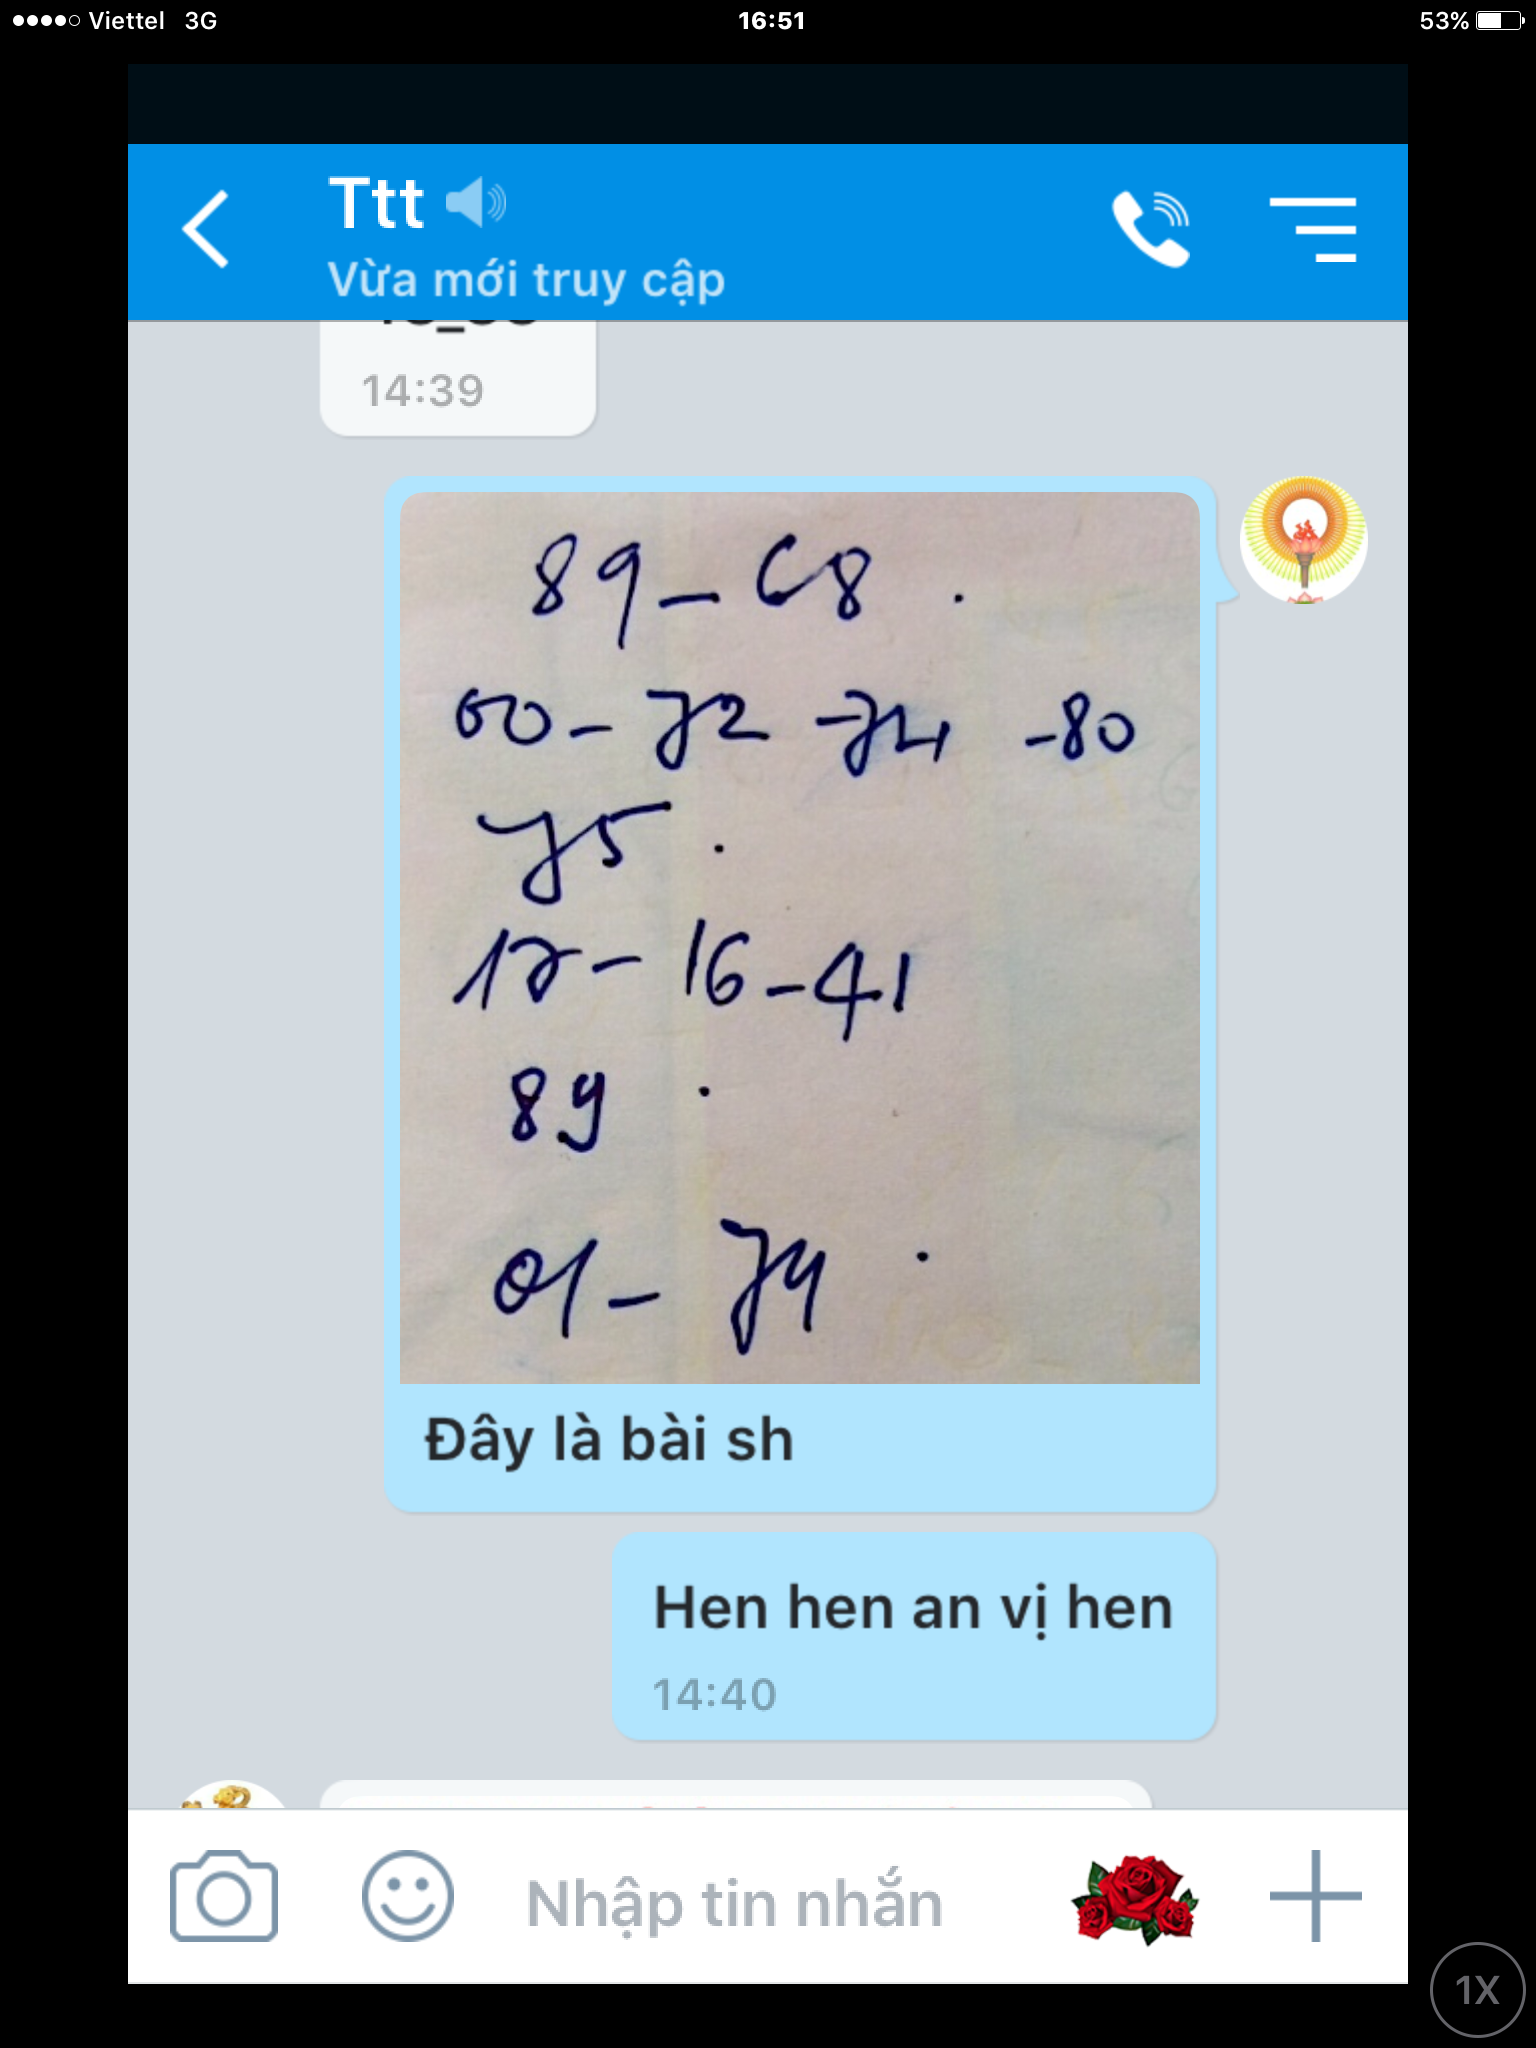 Viettel 3G 16:51 53%
Ttt
Vừa mới truy cập
14:39
89 - 68 .
60 - 72 - 74 - 80
75 .
17 - 16 - 41
89 .
01 - 74 .
Đây là bài sh
Hen hen an vị hen
14:40
Nhập tin nhắn
1X